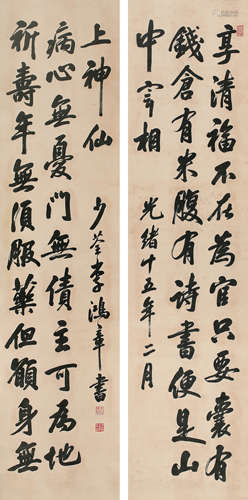 享清福不在為官只要囊有
錢倉有米腹有詩書便是山
中宰相 光緒十五年二月
祈壽年無須服藥但願身無
病心無憂門無債主可為地
上神仙 少荃李鴻章書